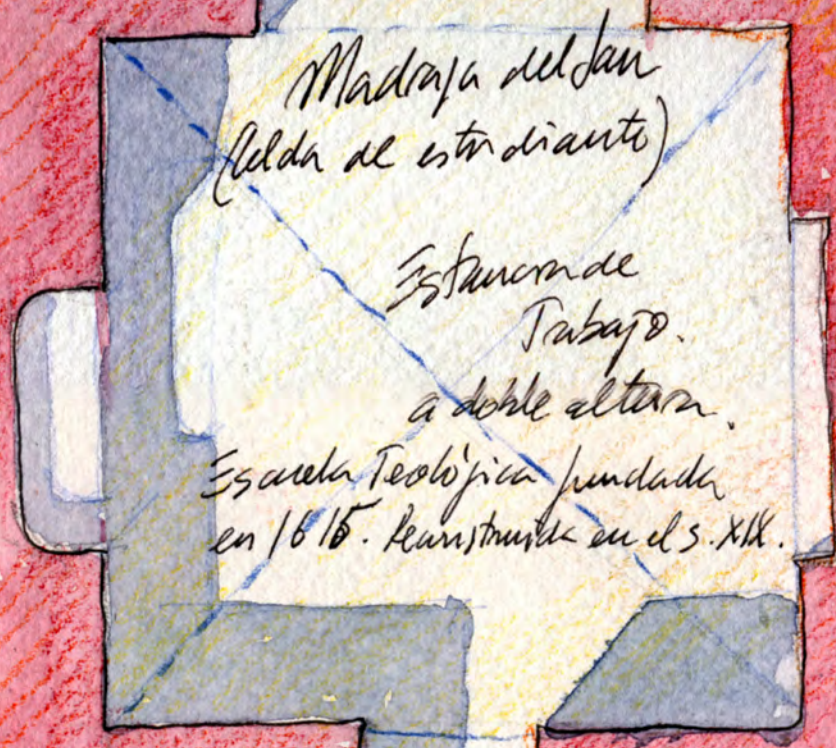 Madraja del Jan
(Celda de estudiante)
Estancia de
Trabajo.
a doble altura.
Escuela Teológica fundada
en 1615. Reconstruida en el s. XIX.